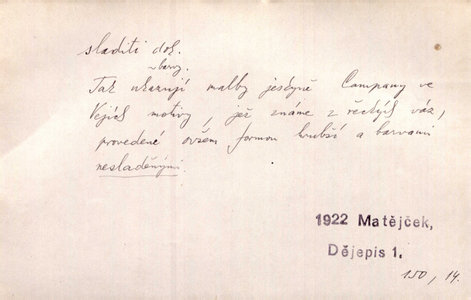 sladiti dok.
barvy.
Tak ukazují malby jeskyně Campany ve
Vejích motivy, jež známe z řeckých váz,
provedené ovšem formou hrubší a barvami
nesladěnými.
1922 Matějček,
Dějepis 1.
150, 14.